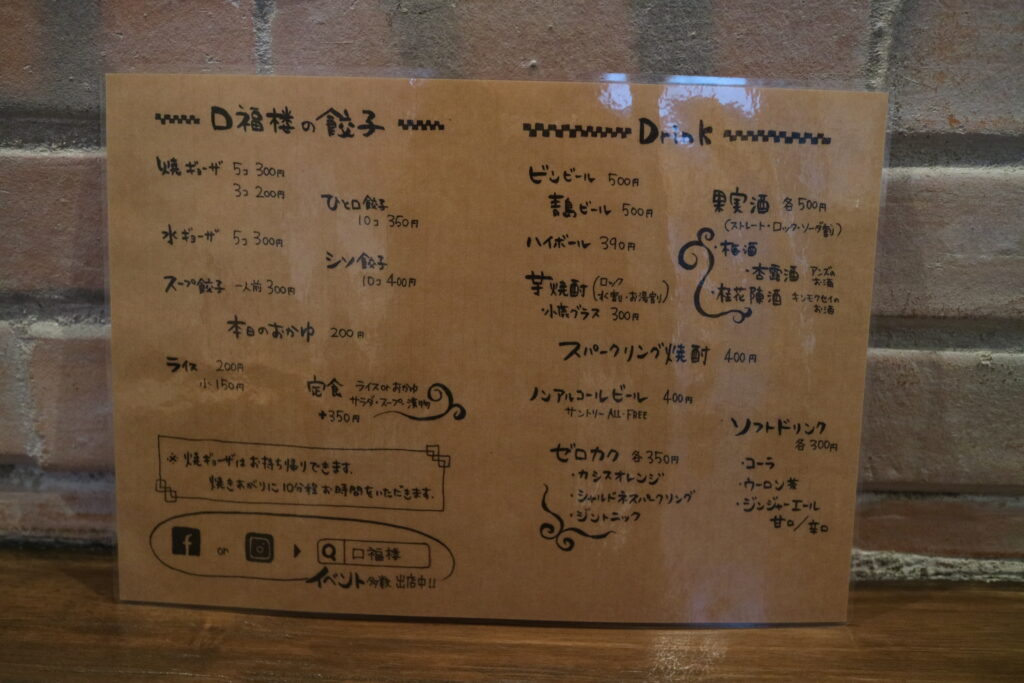 口福楼の餃子
焼ギョーザ 5コ 300円
3コ 200円
ひと口餃子
10コ 350円
水ギョーザ 5コ 300円
シソ餃子
10コ 400円
スープ餃子 一人前 300円
本日のおかゆ 200円
ライス 200円
小 150円
定食 ライス or おかゆ
サラダ・スープ・漬物
+350円
※ 焼ギョーザはお持ち帰りできます。
焼きあがりに10分程お時間をいただきます。
f or ▶ 口福楼
イベント多数出店中!!
Drink
ビンビール 500円
青島ビール 500円
ハイボール 390円
芋焼酎 (ロック
水割・お湯割)
小湊グラス 300円
スパークリング焼酎 400円
ノンアルコールビール 400円
サントリー ALL-FREE
ゼロカク 各350円
・カシスオレンジ
・シャルドネスパークリング
・ジントニック
果実酒 各500円
(ストレート・ロック・ソーダ割)
・梅酒
・杏露酒 アンズの
お酒
・桂花陳酒 キンモクセイの
お酒
ソフトドリンク
各300円
・コーラ
・ウーロン茶
・ジンジャーエール
甘口/辛口